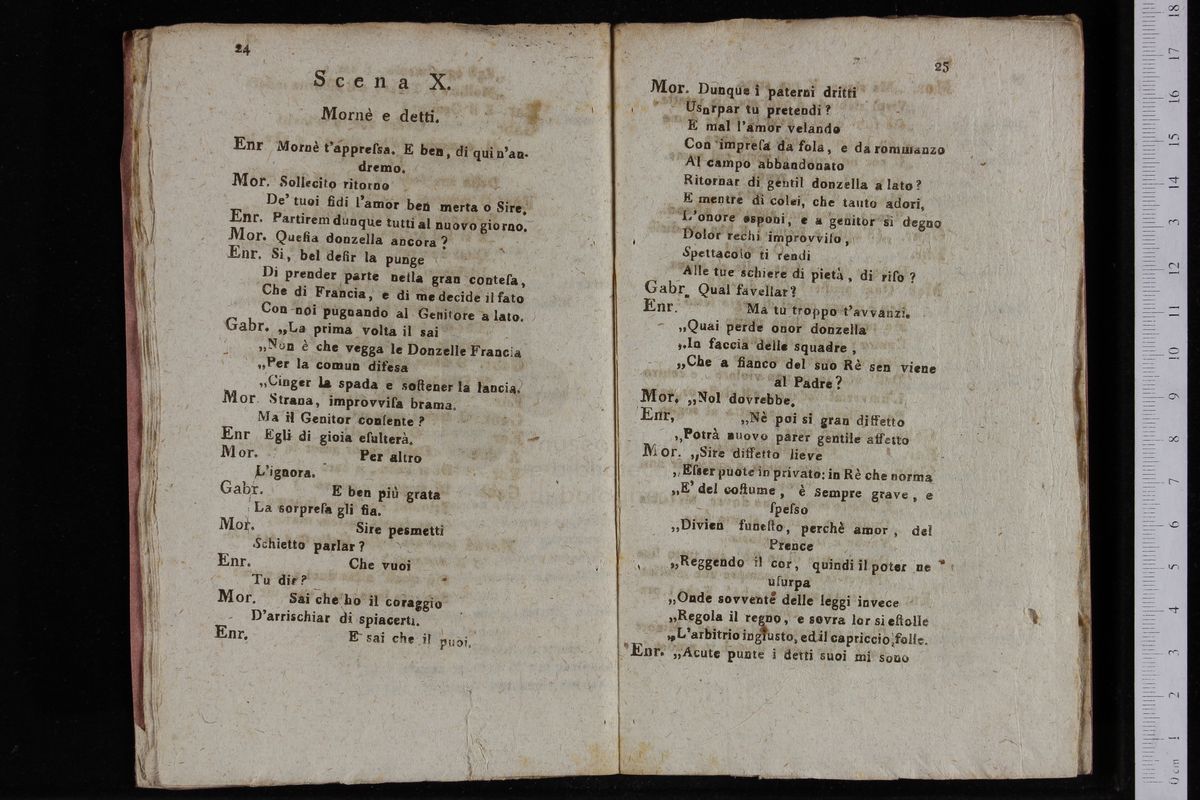 24
Scena X.
Mornè e detti.
Enr Mornè t'appreſsa. E ben, di qui n'an-
dremo.
Mor. Sollecito ritorno
De' tuoi fidi l'amor ben merta o Sire.
Enr. Partirem dunque tutti al nuovo giorno.
Mor. Queſta donzella ancora?
Enr. Si, bel deſir la punge
Di prender parte nella gran conteſa,
Che di Francia, e di me decide il fato
Con noi pugnando al Genitore a lato.
Gabr. „La prima volta il sai
„Non è che vegga le Donzelle Francia
„Per la comun difesa
„Cinger la spada e soſtener la lancia.
Mor Strana, improvviſa brama.
Ma il Genitor conſente?
Enr Egli di gioia eſulterà.
Mor. Per altro
L'ignora.
Gabr. E ben più grata
La sorpreſa gli fia.
Mor. Sire pesmetti
Schietto parlar?
Enr. Che vuoi
Tu dir?
Mor. Sai che ho il coraggio
D'arrischiar di spiacerti.
Enr. E sai che il puoi.
25
Mor. Dunque i paterni dritti
Usnrpar tu pretendi?
E mal l'amor velando
Con impreſa da fola, e da rommanzo
Al campo abbandonato
Ritornar di gentil donzella a lato?
E mentre di colei, che tauto adori,
L'onore esponi, e a genitor sì degno
Dolor rechi improvviſo,
Spettacolo ti rendi
Alle tue schiere di pietà, di riſo?
Gabr. Qual favellar?
Enr. Ma tu troppo t'avvanzi.
„Quai perde onor donzella
„In faccia delle squadre,
„Che a fianco del suo Rè sen viene
al Padre?
Mor. „Nol dovrebbe.
Enr, „Nè poi si gran diffetto
„Potrà nuovo parer gentile affetto
Mor. „Sire diffetto lieve
„Eſser puote in privato: in Rè che norma
„E' del coſtume, è sempre grave, e
ſpeſso
„Divien funeſto, perchè amor, del
Prence
„Reggendo il cor, quindi il poter ne
uſurpa
„Onde sovvente delle leggi invece
„Regola il regno, e sovra lor si eſtolle
„L'arbitrio ingiusto, ed il capriccio folle.
Enr. „Acute punte i detti suoi mi sono
0 cm 1 2 3 4 5 6 7 8 9 10 11 12 13 14 15 16 17 18